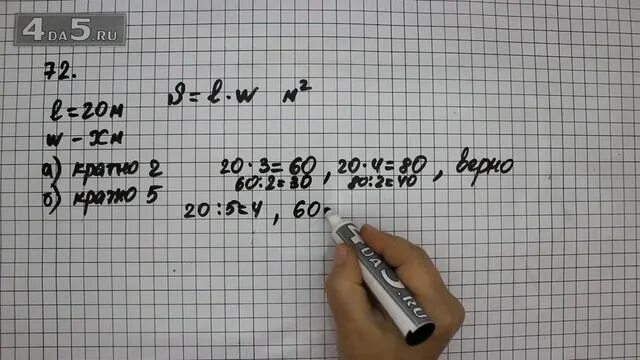 4DA5.RU
72.
l = 20 м
w - x м
S = l · w м²
а) кратно 2
20 · 3 = 60, 20 · 4 = 80, верно
60 : 2 = 30 80 : 2 = 40
б) кратно 5
20 : 5 = 4, 60
4DA5.RU